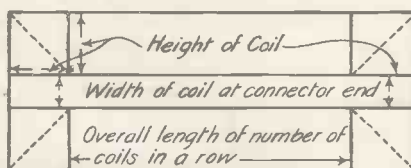 Height of Coil
Width of coil at connector end
Overall length of number of
coils in a row